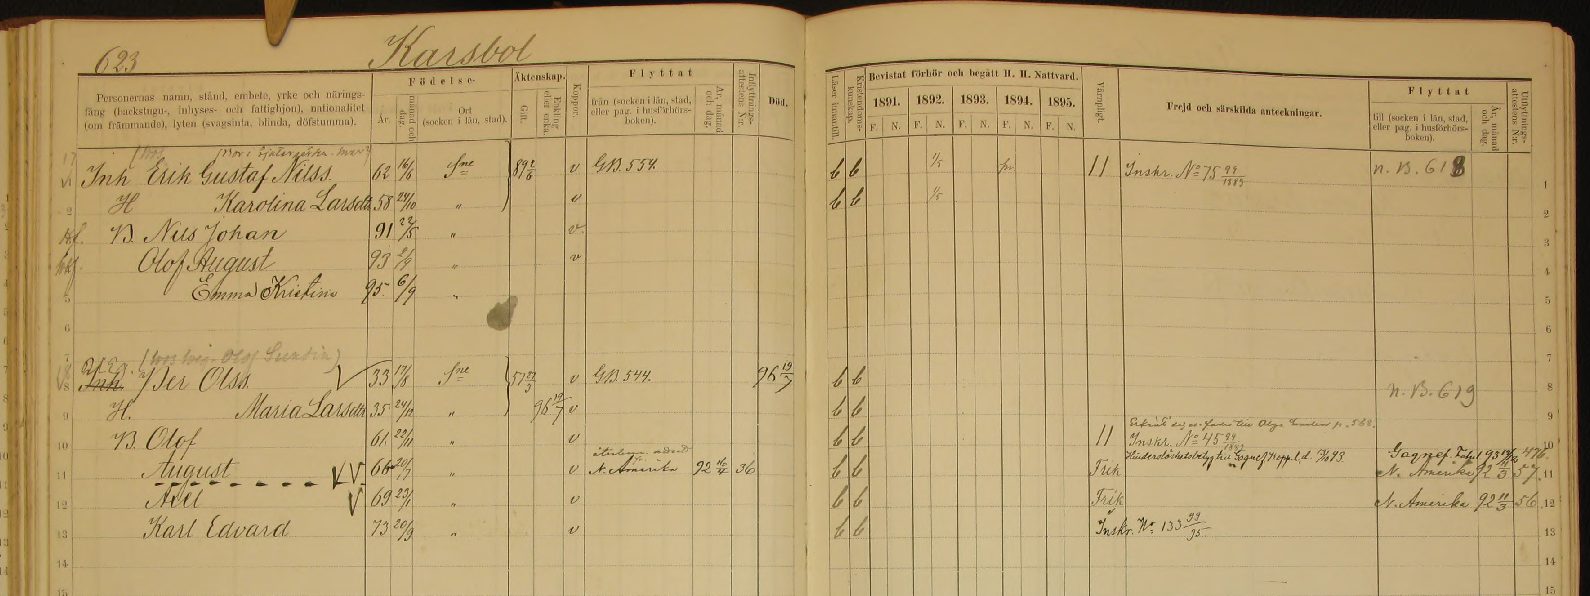 623 Karsbol
Personernas namn, stånd, embete, yrke och närings-
fång (backstugu-, inhyses- och fattighjon), nationalitet
(om främmande), lyten (svagsinta, blinda, döfstumma).
Födelse-
År.
månad och dag.
Ort
(socken i län, stad).
Äktenskap.
Gift.
Enkling eller enka.
Koppor.
Flyttat
från (socken i län, stad,
eller pag. i husförhörs-
boken).
År, månad och dag.
Inflyttnings-attestens N:r.
Död.
Läser innantill.
Kristendoms-kunskap.
Bevistat förhör och begått H. H. Nattvard.
1891. 1892. 1893. 1894. 1895.
F. N. F. N. F. N. F. N. F. N.
Värnpligt.
Frejd och särskilda anteckningar.
Flyttat
till (socken i län, stad,
eller pag. i husförhörs-
boken).
År, månad och dag.
Utflyttnings-attestens N:r.
Inh Erik Gustaf Nilss. 62 16/6 Sne 89 v GB. 554. b b 1/5 11 Inskr. No 75 99/1883 n. B. 618 1
2 H Karolina Larsdtr 58 24/10 " v b b 1/5 2
B. Nils Johan 91 22/5 " v 3
Olof August 93 " v 4
5 Emma Kristina 95 6/9 " 5
6 6
7 7
8 Inh. Per Olss. V 33 Sne 57 v GB. 544. 96 19/7 b b n. B. 619 8
9 H. Maria Larsdtr 35 " 96 19/7 v b b 9
10 B. Olof 61 22/11 " v b b 11 Inskr. No 45 10
11 August V V 66 " v N. Amerika 92 36 b b Frik Gagnef 93 476
N. Amerika 92 57 11
12 Axel V 69 " v b b Frik N. Amerika 92 11/3 56 12
13 Karl Edvard 73 20/9 " v b b Inskr. No 133 99/95 13
14 14
15 15